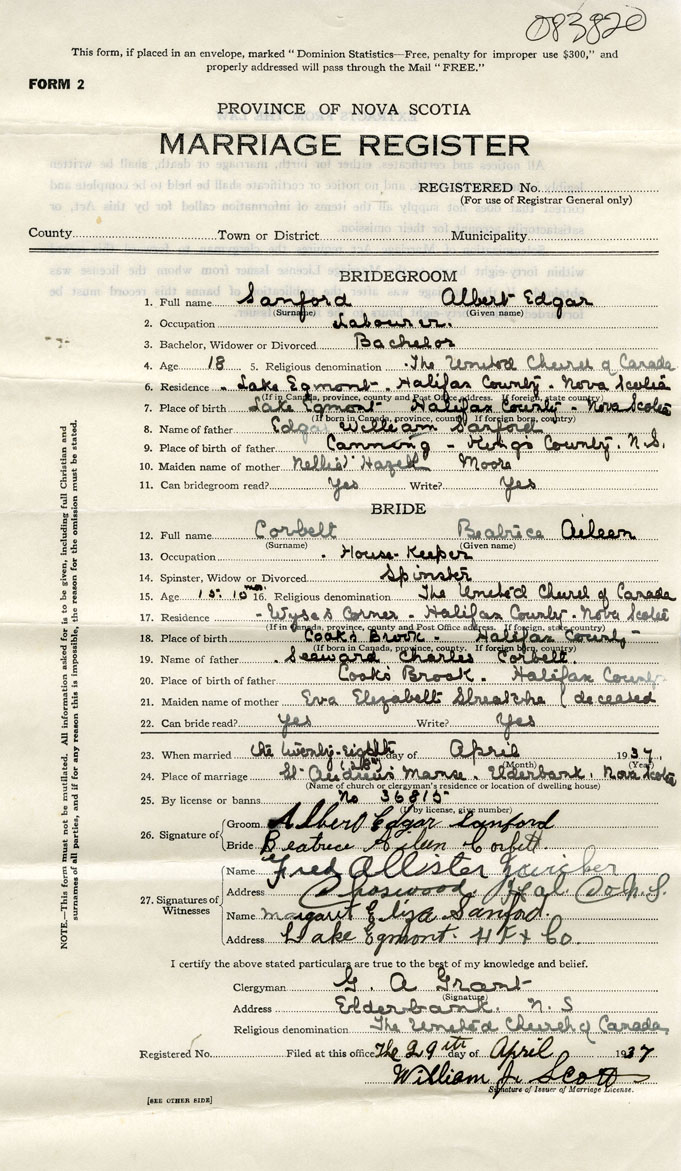 083820
This form, if placed in an envelope, marked "Dominion Statistics—Free, penalty for improper use $300," and
properly addressed will pass through the Mail "FREE."
FORM 2
PROVINCE OF NOVA SCOTIA
MARRIAGE REGISTER
REGISTERED No.
(For use of Registrar General only)
County Town or District Municipality
BRIDEGROOM
1. Full name Sanford Albert Edgar
(Surname) (Given name)
2. Occupation Labourer.
3. Bachelor, Widower or Divorced Bachelor
4. Age 18 5. Religious denomination The United Church of Canada
6. Residence Lake Egmont. Halifax County. Nova Scotia
(If in Canada, province, county and Post Office address. If foreign, state country)
7. Place of birth Lake Egmont Halifax County. Nova Scotia
(If born in Canada, province, county. If foreign born, country)
8. Name of father Edgar William Sanford
9. Place of birth of father Canning - Kings County. N.S.
10. Maiden name of mother Nellie Hazel Moore
11. Can bridegroom read? Yes Write? Yes
BRIDE
12. Full name Corbett Beatrice Aileen
(Surname) (Given name)
13. Occupation House-Keeper
14. Spinster, Widow or Divorced Spinster
15. Age 15. 10 mos 16. Religious denomination The United Church of Canada
17. Residence - Wyses Corner - Halifax County - Nova Scotia
(If in Canada, province, county and Post Office address. If foreign, state country)
18. Place of birth Cooks Brook - Halifax County -
(If born in Canada, province, county. If foreign born, country)
19. Name of father Seaward Charles Corbett.
20. Place of birth of father Cooks Brook. Halifax County
21. Maiden name of mother Eva Elizabeth (deceased
22. Can bride read? Yes Write? Yes
23. When married the twenty-eighth day of April 1937.
(28th) (Month) (Year)
24. Place of marriage St. Andrews Manse. Elderbank. Nova Scotia
(Name of church or clergyman's residence or location of dwelling house)
25. By license or banns No 36815
(If by license, give number)
26. Signature of Groom Albert Edgar Sanford
Bride Beatrice Aileen Corbett
27. Signatures of Witnesses
Name Fred Allister
Address Chaswood Hal. Co. N.S.
Name Margaret Eliza Sanford.
Address Lake Egmont. Hfx Co.
I certify the above stated particulars are true to the best of my knowledge and belief.
Clergyman G. A Grant
(Signature)
Address Elderbank. N. S
Religious denomination The United Church of Canada
Registered No. Filed at this office The 29th day of April 1937
William J. Scott
Signature of Issuer of Marriage License.
[SEE OTHER SIDE]
NOTE.—This form must not be mutilated. All information asked for is to be given, including full Christian and
surnames of all parties, and if for any reason this is impossible, the reason for the omission must be stated.